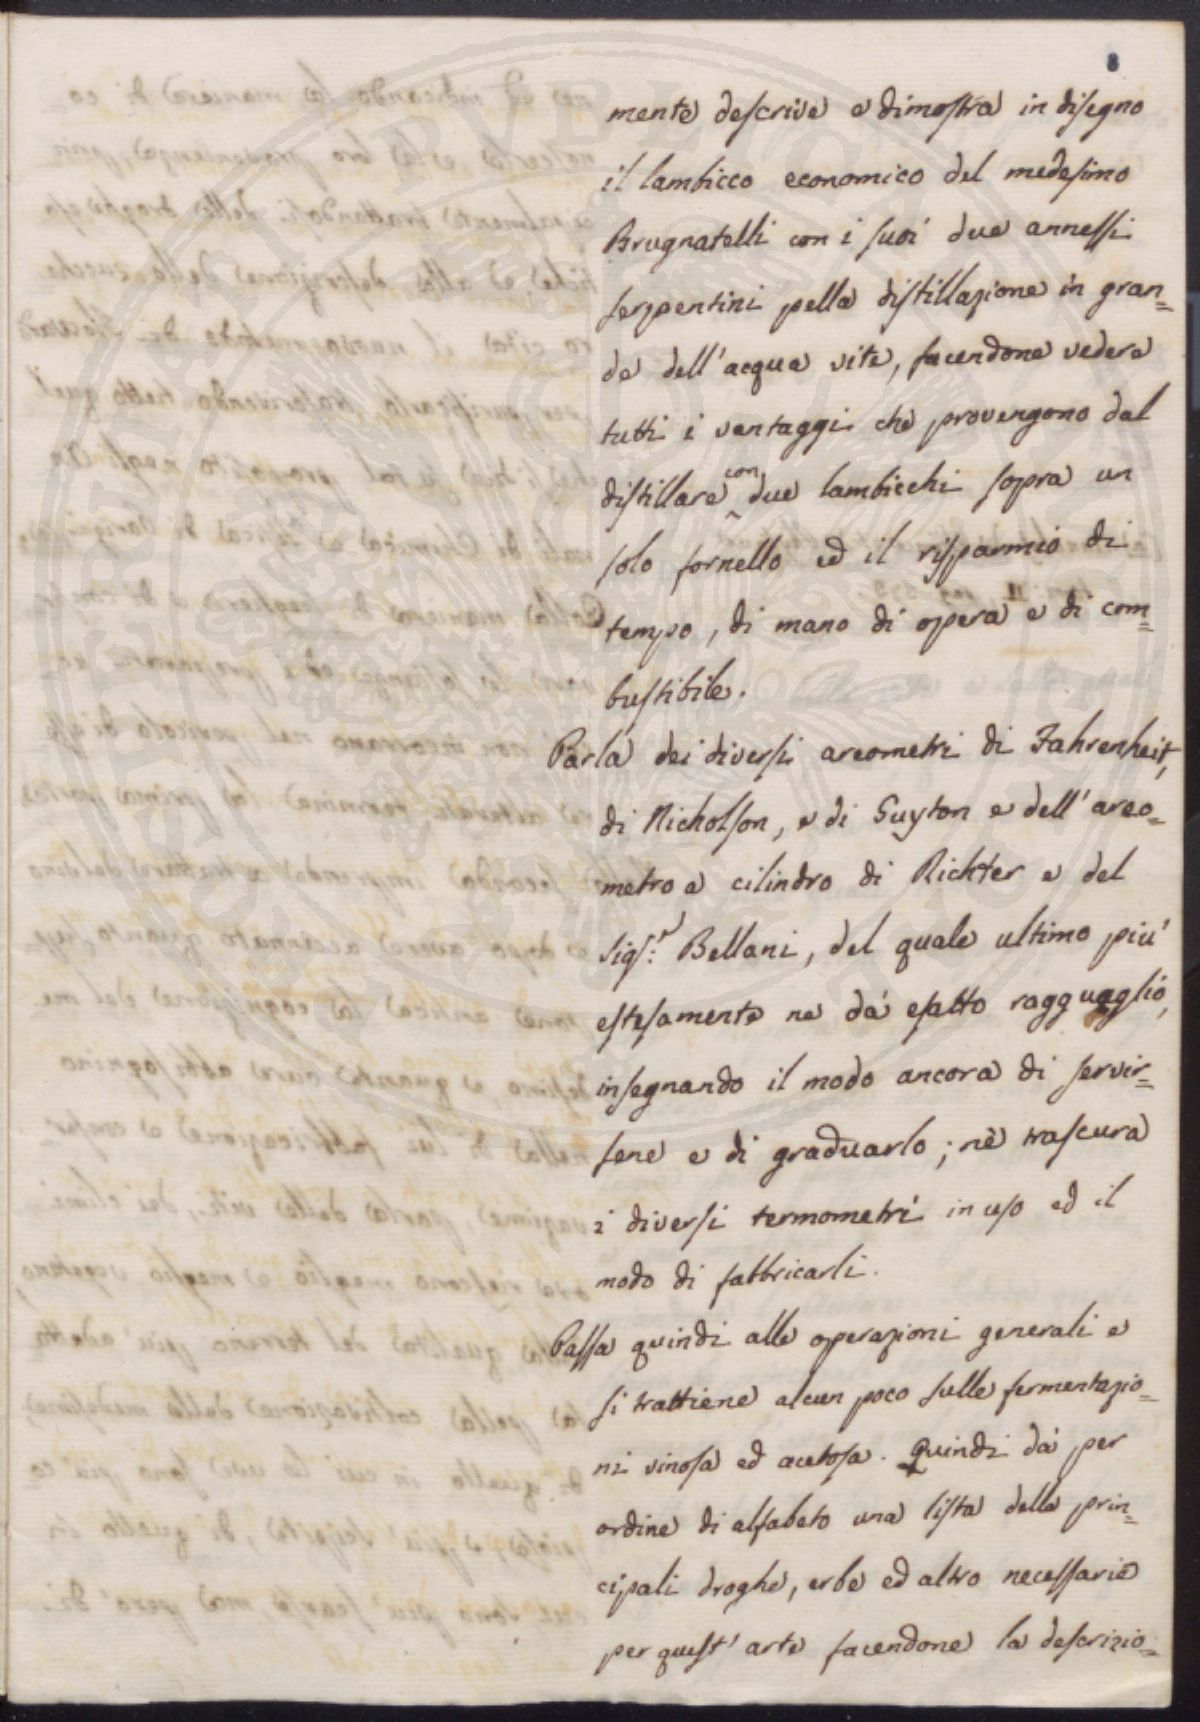 8
mente descrive e dimostra in disegno
il lambicco economico del medesimo
Brugnatelli con i suoi due annessi
serpentini pella distillazione in gran=
de dell'acqua vite, facendone vedere
tutti i vantaggi che provengono dal
distillare con due lambicchi sopra un
solo fornello ed il risparmio di
tempo, di mano di opera e di com=
bustibile.
Parla dei diversi areometri di Fahrenheit,
di Nicholson, e di Guyton e dell'areo=
metro a cilindro di Richter e del
Sig.r Bellani, del quale ultimo più
estesamente ne dà esatto ragguaglio,
insegnando il modo ancora di servir=
sene e di graduarlo; nè trascura
i diversi termometri in uso ed il
modo di fabbricarli.
Passa quindi alle operazioni generali e
si trattiene alcun poco sulle fermentazio=
ni vinosa ed acetosa. Quindi dà per
ordine di alfabeto una lista delle prin=
cipali droghe, erbe ed altro necessario
per quest'arte facendone la descrizio=